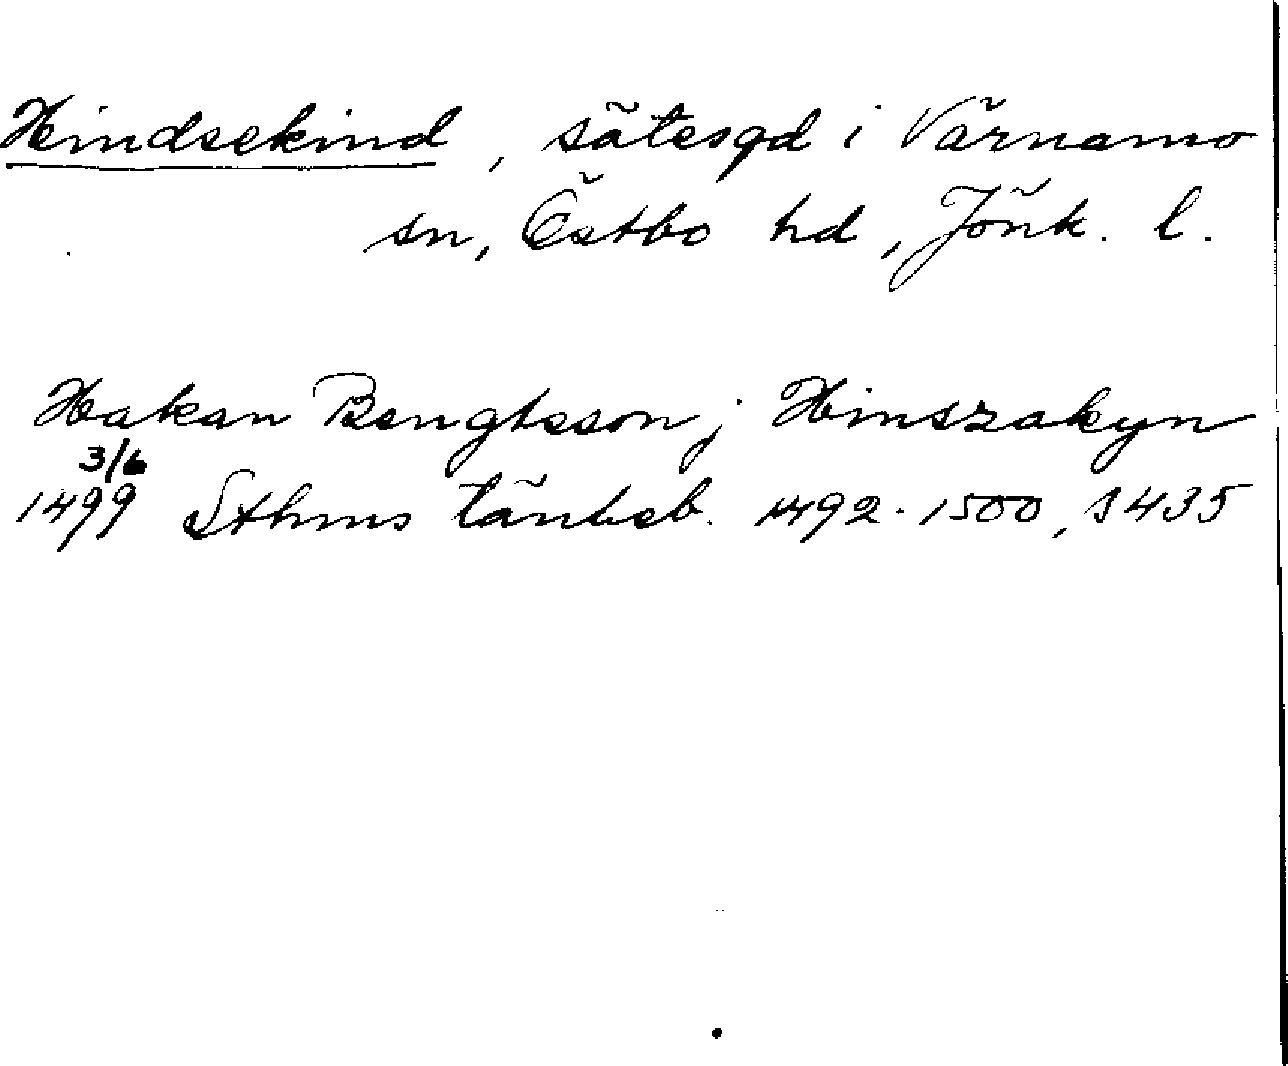 Hindsekind, sätesgd i Värnamo
sn, Östbo hd, Jönk. l.
Hakan Bengtsson j Hinszakyn
3/6
1499 Sthms tänkeb. 1492-1500, s 435